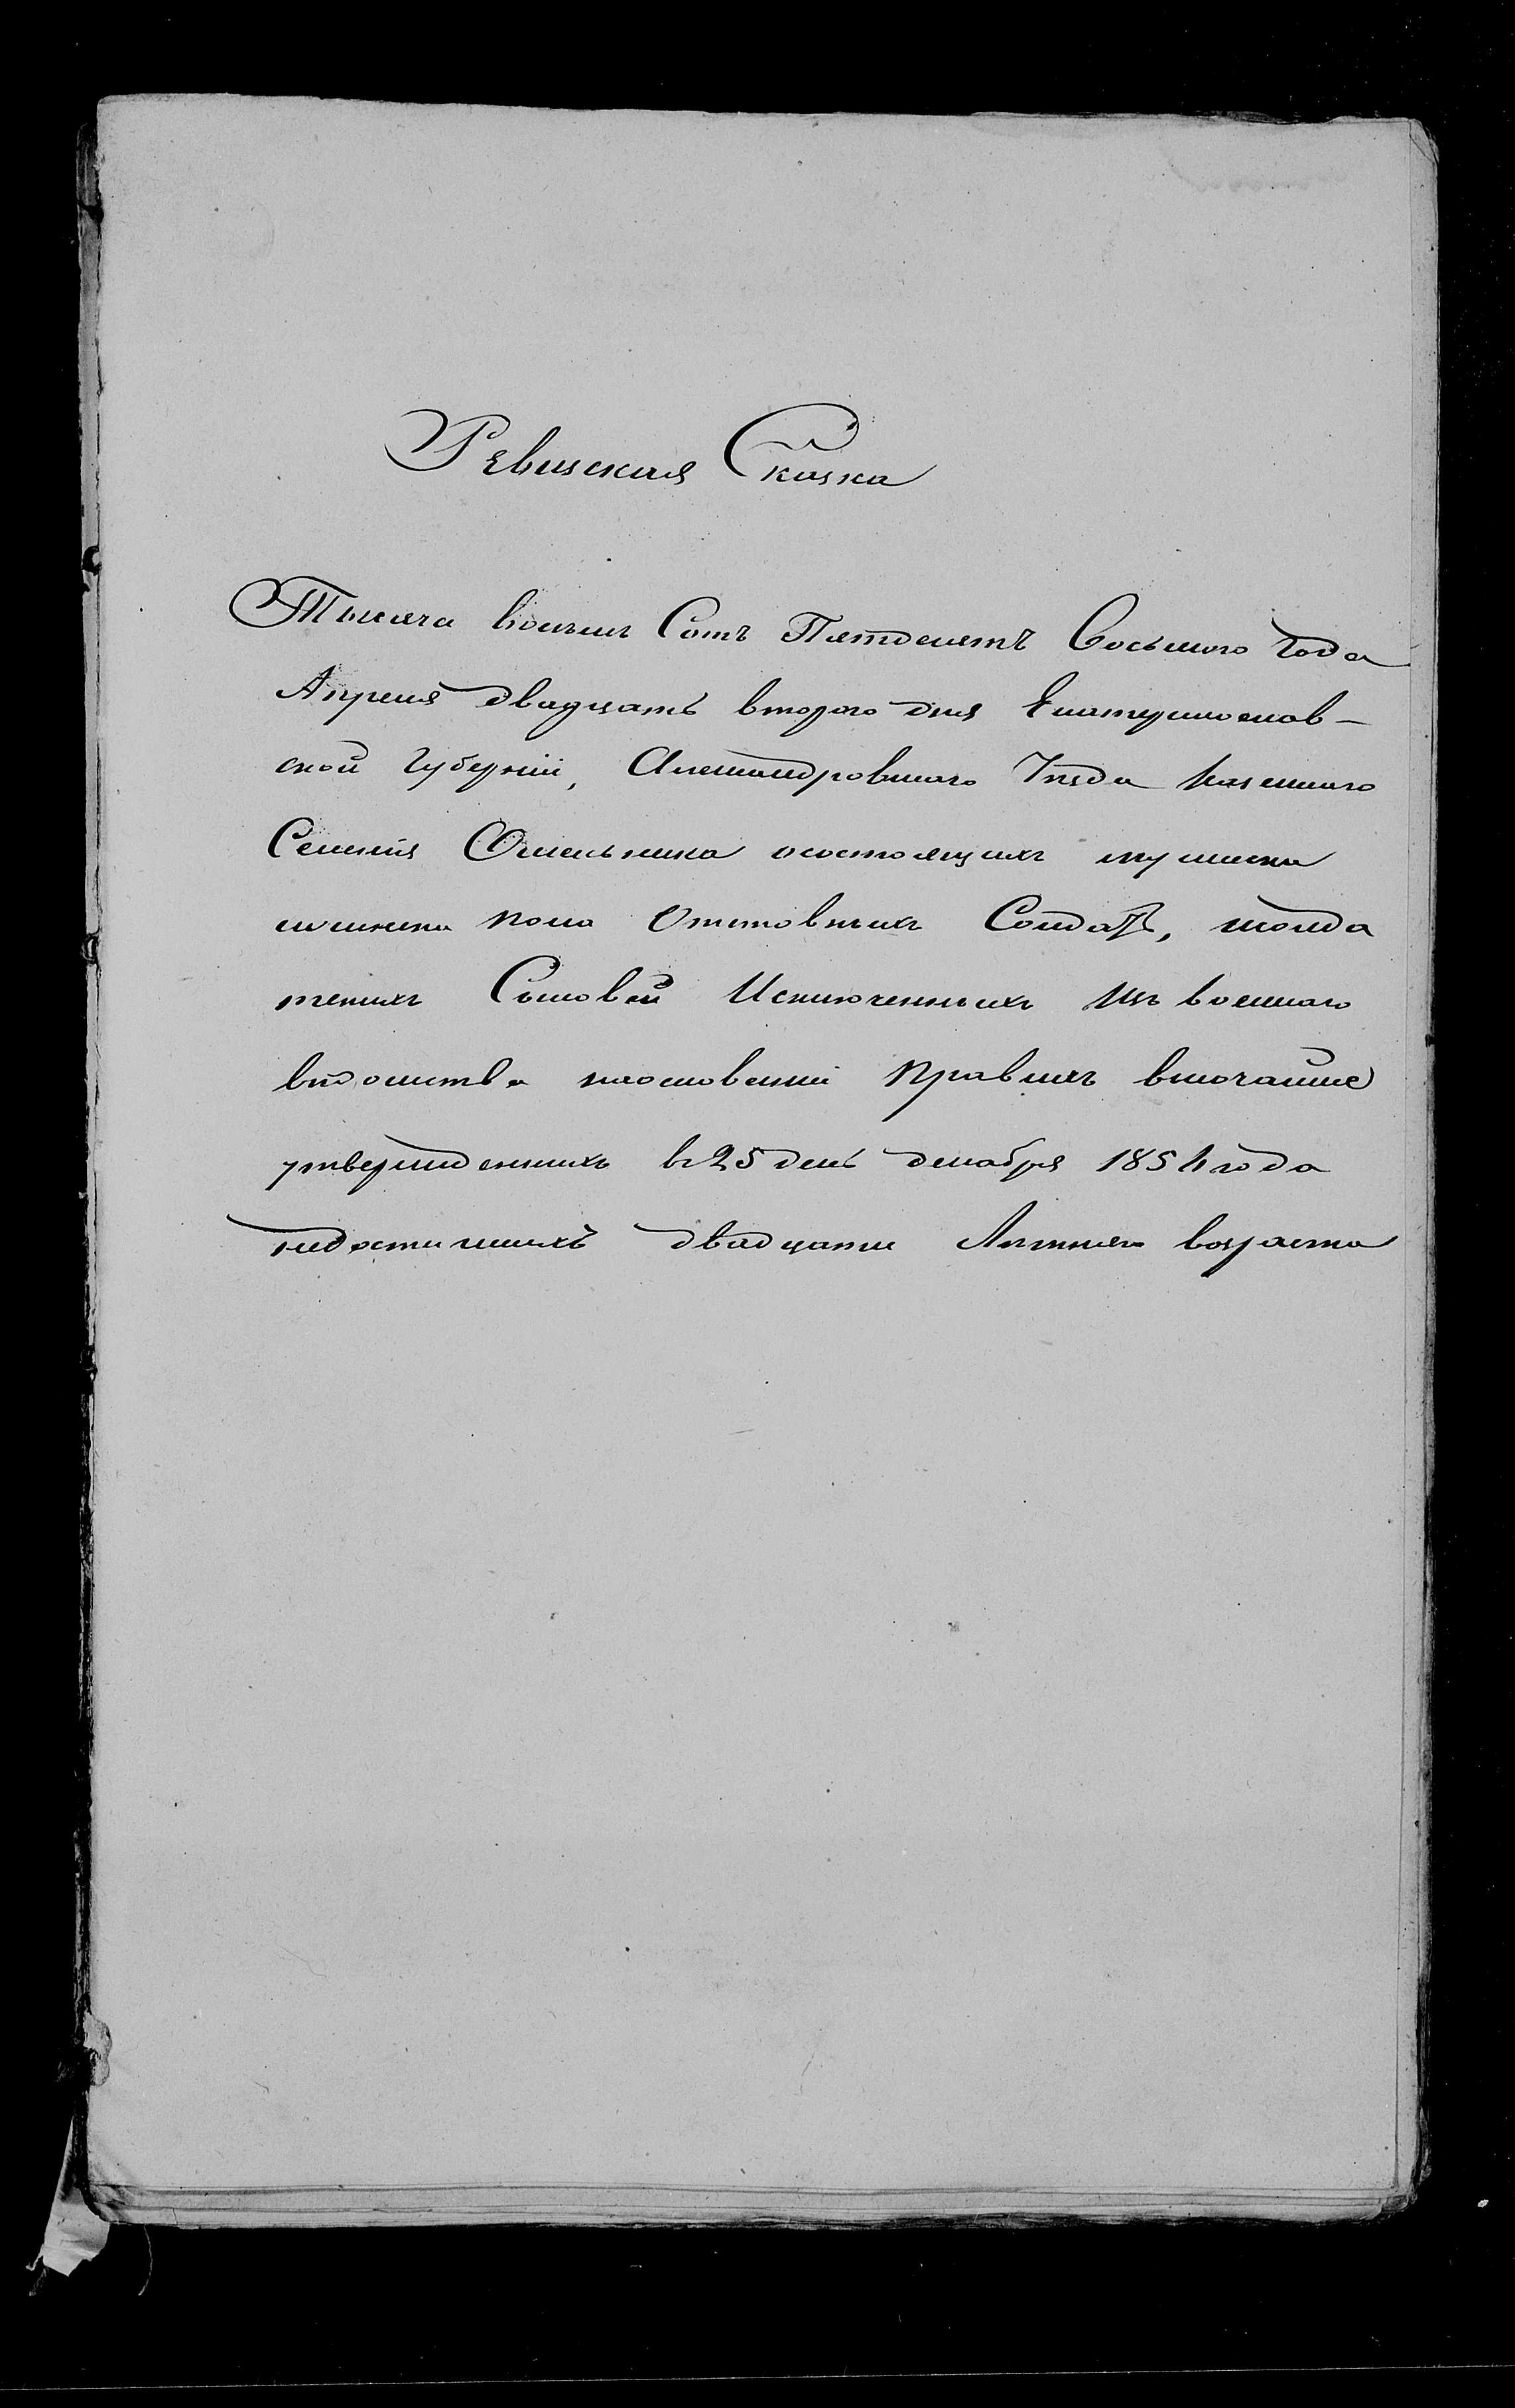 Ревиская Сказка
Тысяча восемь Сотъ Пятдесятъ Восьмого Года
Апреля двадцать второго дня Екатеринослав-
ской Губерніи, Александровшаго Уѣзда казеннаго
Селенія Омельника осостоящихъ мужеска
иженска пола Отставныхъ Солдатъ, исолда
тскихъ Сыновей Исключенныхъ Изъ военнаго
вѣдомства наоснованіи правилъ высочайше
утвержденныхъ в 25 день декабря 1854 года
недостигшихъ двадцати Лѣтняго возраста